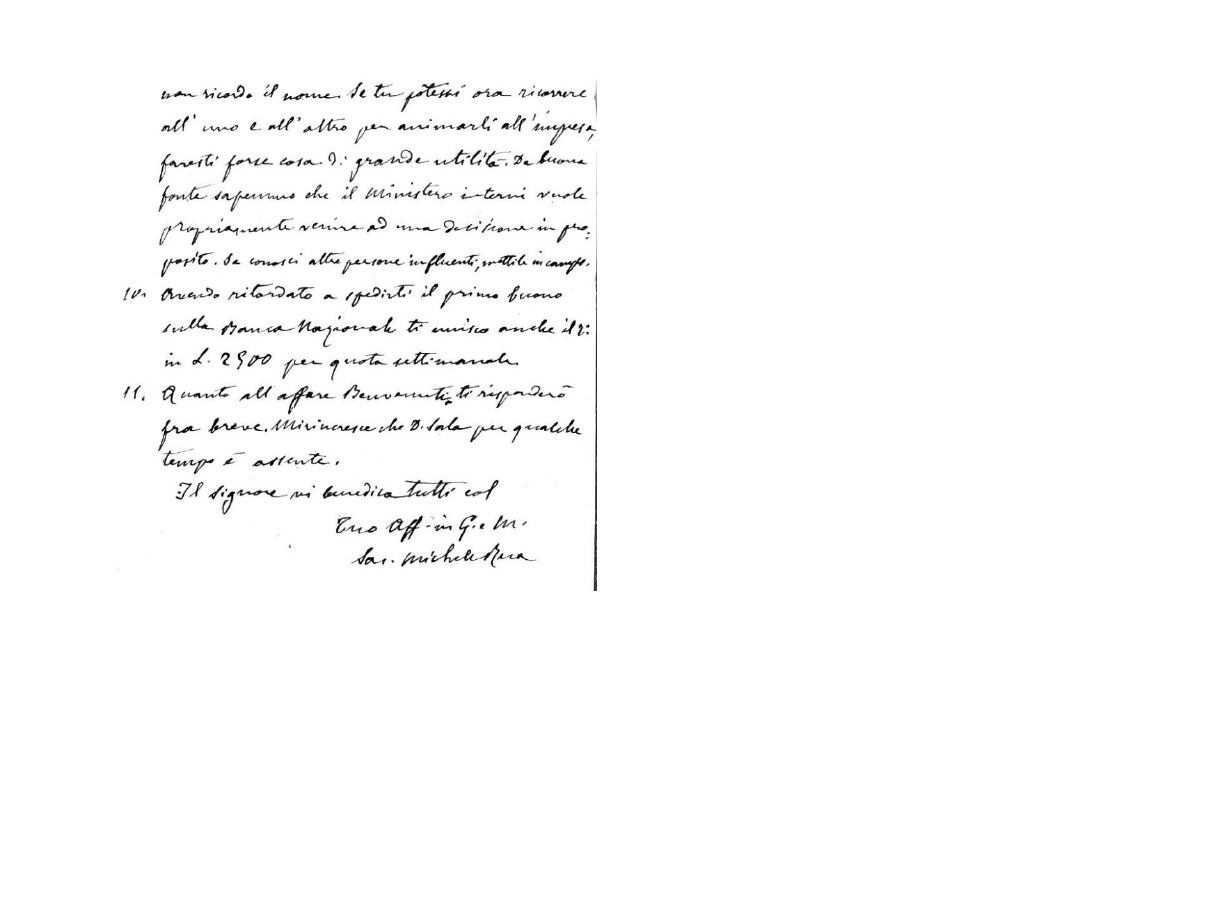 non ricordo il nome. Se tu potessi ora ricorrere
all' uno e all' altro per animarli all' impresa,
faresti forse cosa di grande utilità. Da buona
fonte sapemmo che il Ministero interni vuole
propriamente venire ad una decisione in pro-
posito. Se conosci altre persone influenti, mettile in campo.
10. Avendo ritardato a spedirti il primo buono
sulla Banca Nazionale ti unisco anche il 2°
in L. 2500 per quota settimanale.
11. Quanto all affare Benvenuti, ti risponderò
fra breve. Mi rincresce che D. Sala per qualche
tempo è assente.
Il Signore vi benedica tutti col
Tuo Aff. in G. e M.
Sac. Michele Rua